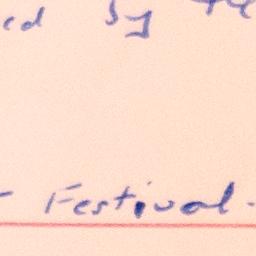 ed by the
- Festival.